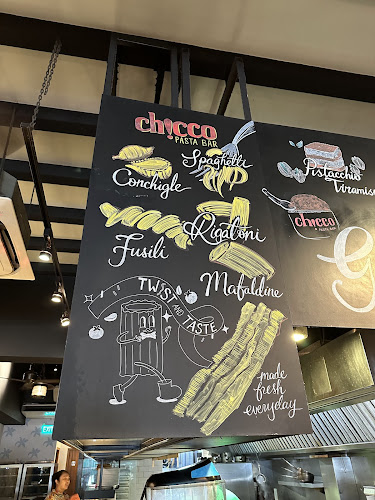 ch!cco
PASTA BAR
Spaghetti
Conchigle
Rigatoni
Fusili
Mafaldine
TWIST AND TASTE
made
fresh
everyday
Pistacchio
Tiramisu
ch!cco
PASTA BAR
G
EXIT